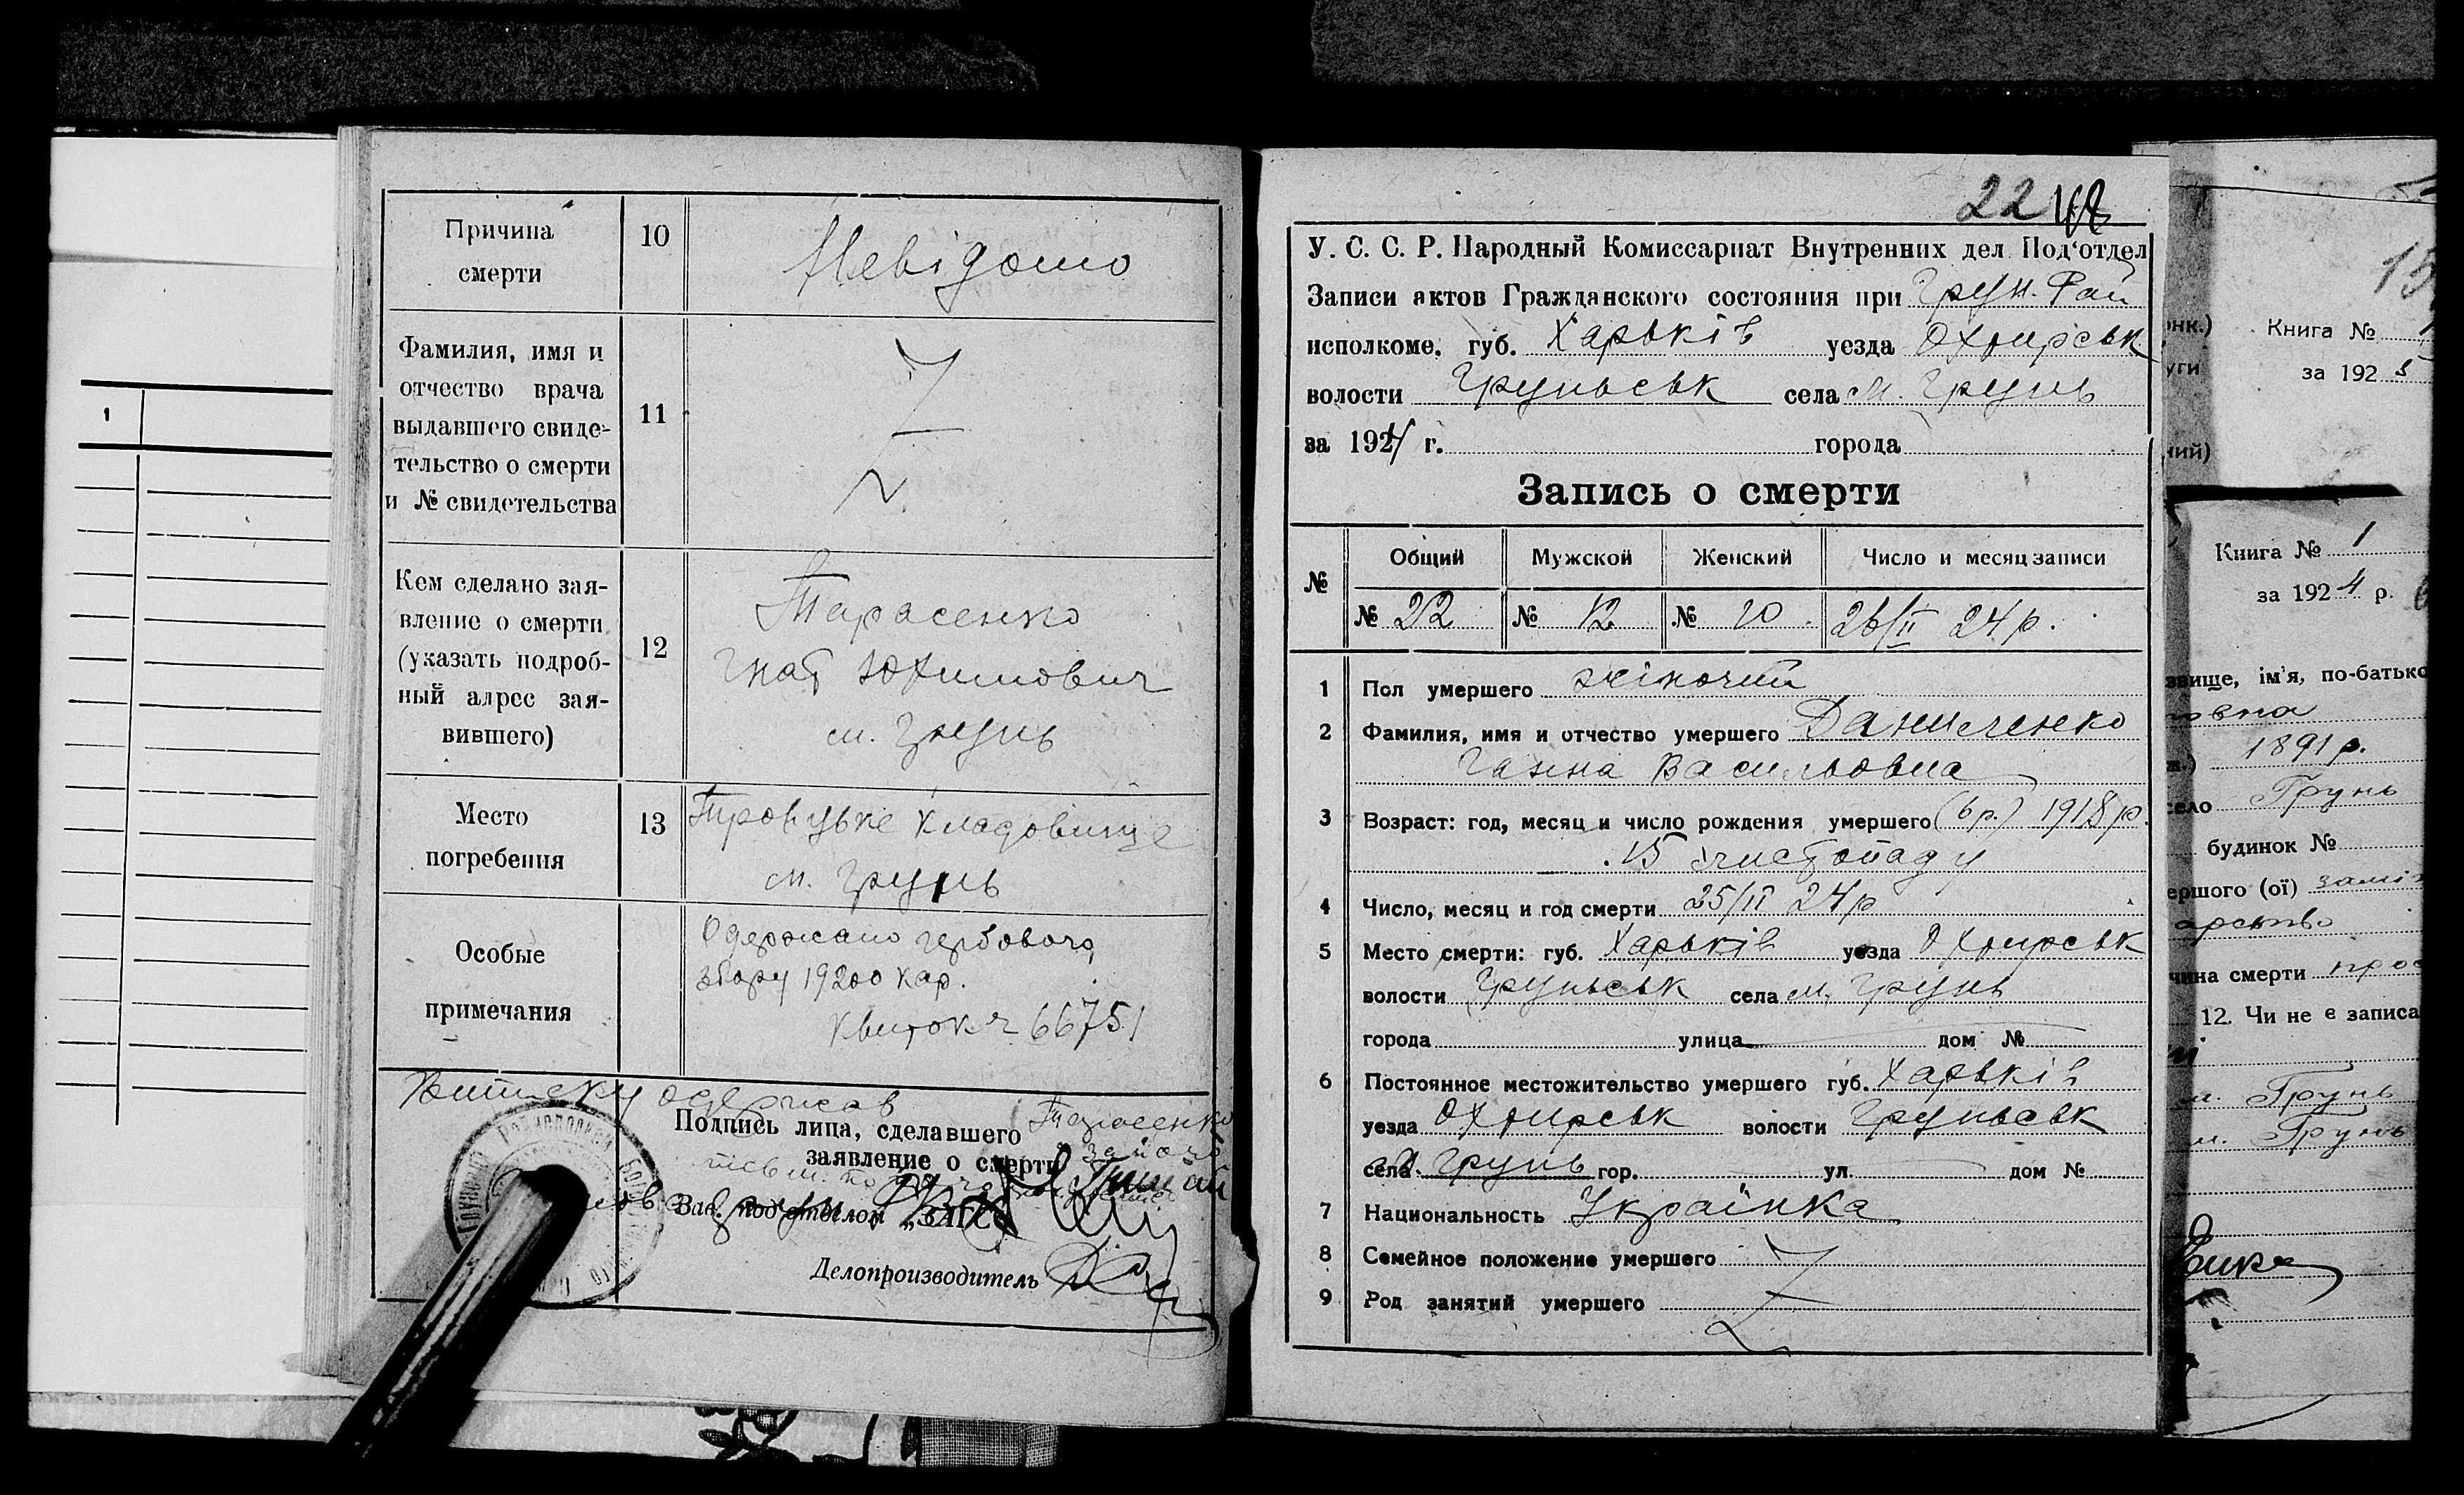 1
Причина
смерти
10
Невідомо
Фамилия, имя и
отчество врача
выдавшего свиде-
тельство о смерти
и № свидетельства
11
Кем сделано зая-
вление о смерти
(указать подроб-
ный адрес зая-
вившего)
12
Тарасенко
Гнат Юхимович
м. Грунь
Место
погребения
13
Троіцьке кладовище
м. Грунь
Особые
примечания
Одержано гербового
збору 19200 кар.
Квиток ч 66751
Виписку одержав
Подпись лица, сделавшего
заявление о смерти
Тарасенко
Зав. под'отделом „ЗАГС“
Делопроизводитель
22
У. С. С. Р. Народный Комиссариат Внутренних дел Под‘отдел
Записи актов Гражданского состояния при Грун. Рай
исполкоме, губ. Харьків уезда Охтирськ
волости Груньськ села м. Грунь
за 1924 г. города
Запись о смерти
№ Общий Мужской Женский Число и месяц записи
№ 22 № 12 № 10 26/II 24 р.
1 Пол умершего жіночий
2 Фамилия, имя и отчество умершего Даниленко
Ганна Васильовна
3 Возраст: год, месяц и число рождения умершего (6 р.) 1918 р.
15 листопаду
4 Число, месяц и год смерти 25/II 24 р
5 Место смерти: губ. Харьків уезда Охтирськ
волости Груньськ села м. Грунь
города улица дом №
6 Постоянное местожительство умершего губ. Харьків
уезда Охтирськ волости Груньськ
села м. Грунь гор. ул. дом №
7 Национальность Українка
8 Семейное положение умершего
9 Род занятий умершего
Книга №
за 192 5
Книга № 1
за 1924 р.
звище, ім'я, по-батько
1891 р.
село Грунь
будинок №
ершого (ої)
чина смерти
12. Чи не є записа
м. Грунь
м. Грунь